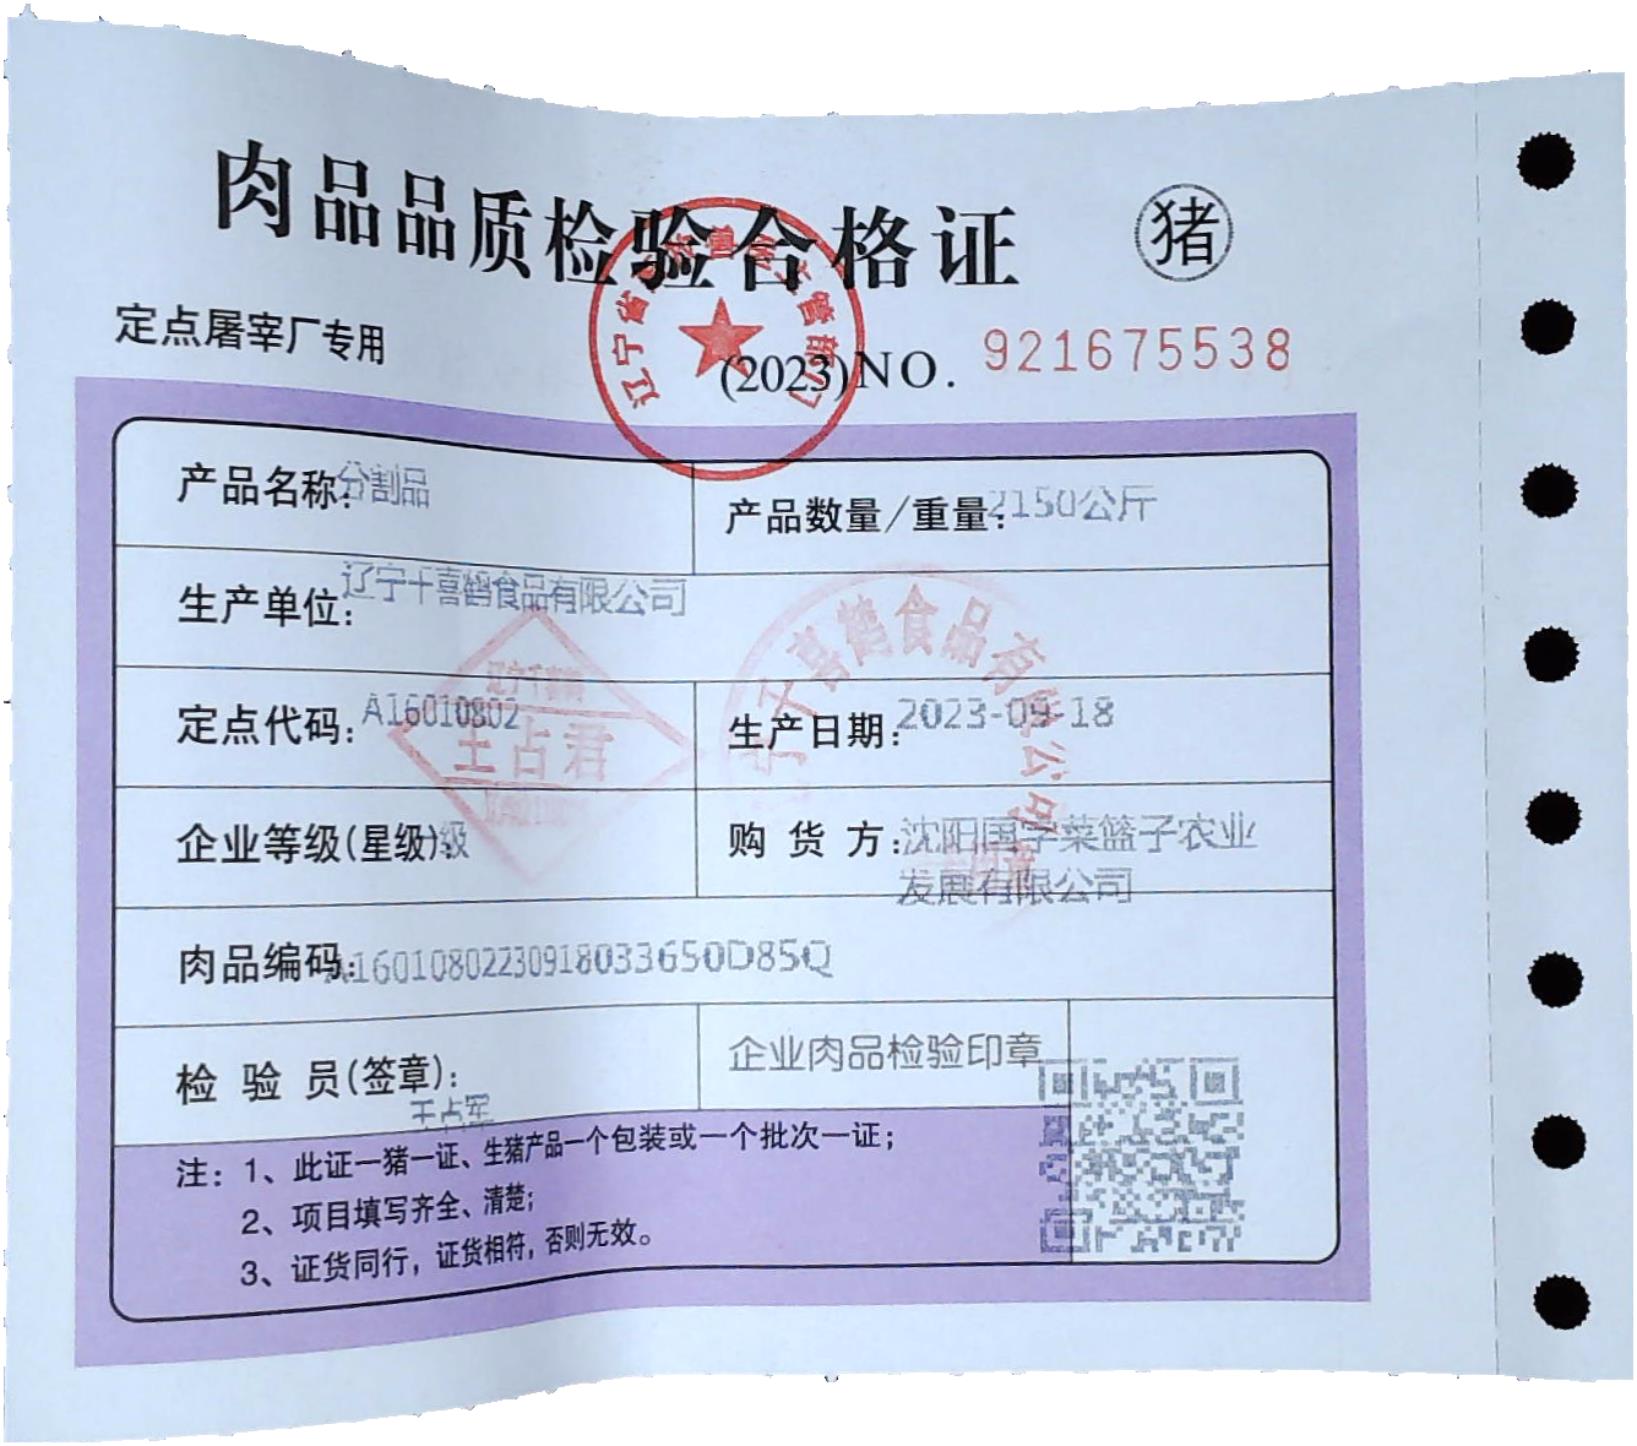 肉品品质检验合格证 猪
定点屠宰厂专用
(2023)NO. 921675538
产品名称:分割品
产品数量/重量:2150公斤
生产单位:辽宁千喜鹤食品有限公司
定点代码:A16010802
生产日期:2023-09-18
企业等级(星级):级
购货方:沈阳国孚菜篮子农业
发展有限公司
肉品编码:A16010802230918033650D85Q
检验员(签章):
王占军
企业肉品检验印章
注:1、此证一猪一证、生猪产品一个包装或一个批次一证;
2、项目填写齐全、清楚;
3、证货同行,证货相符,否则无效。
辽宁千喜鹤
王占君
辽宁千喜鹤食品有限公司